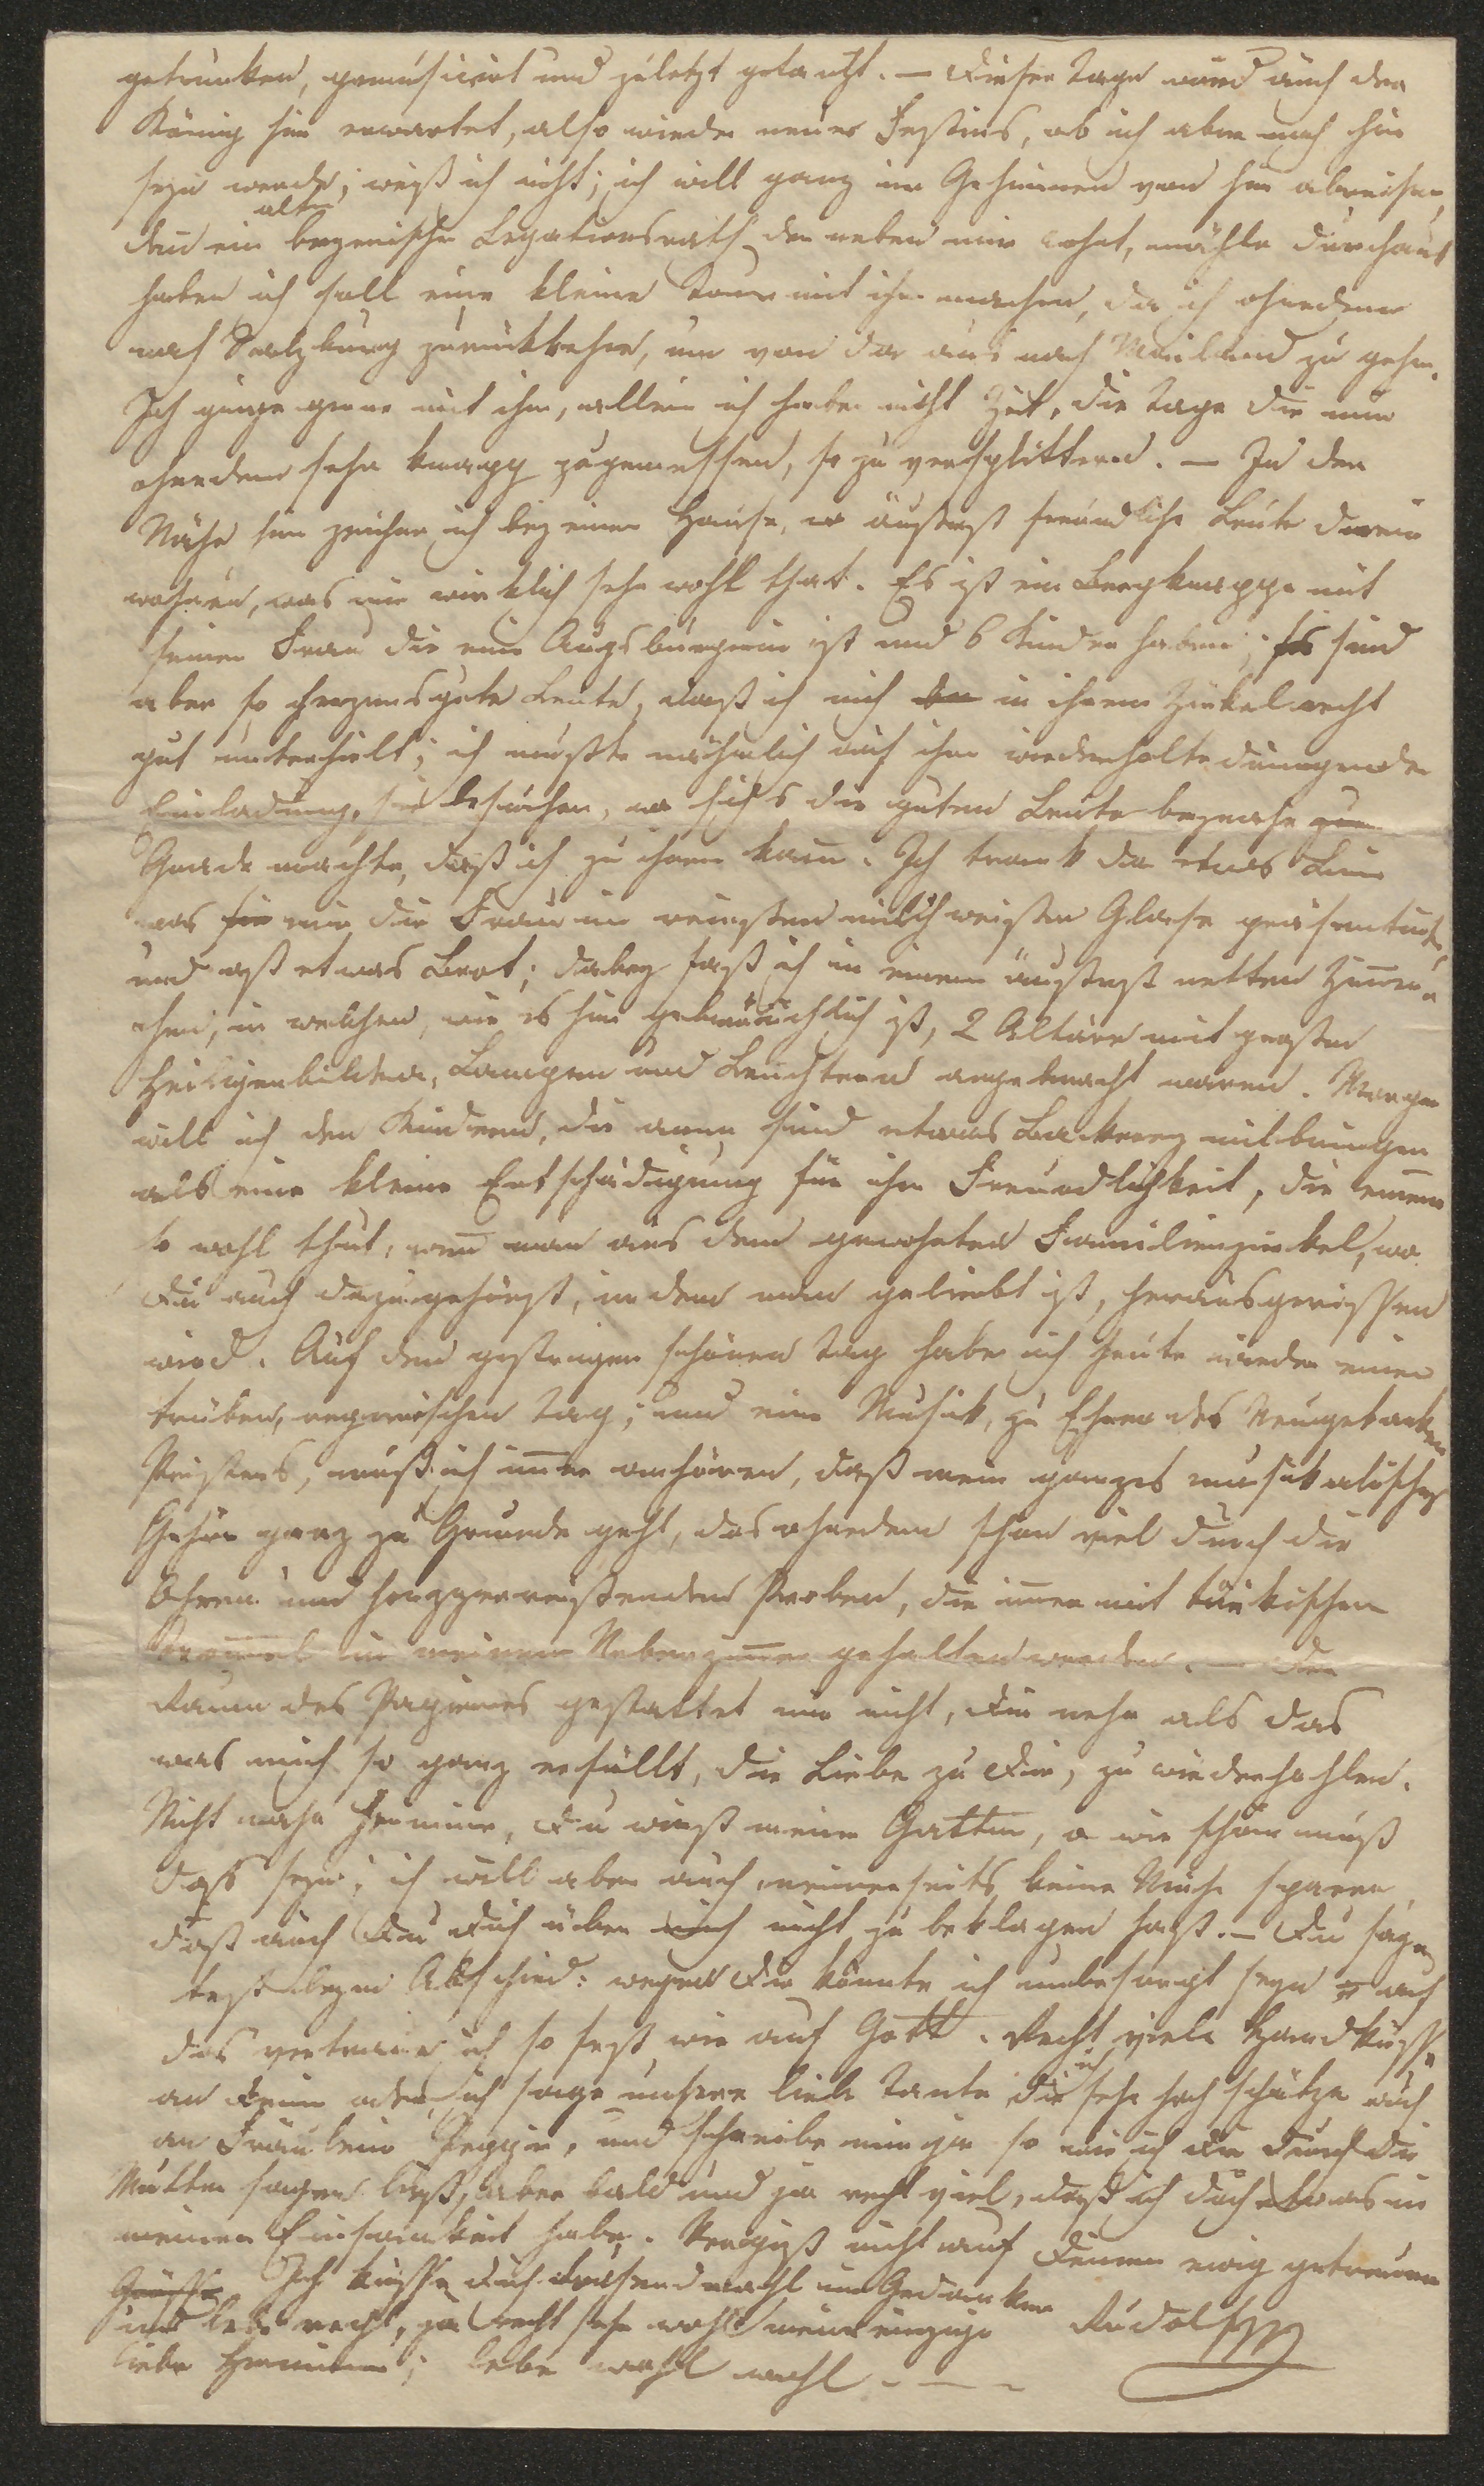 getrunken, gemusicirt und zuletzt getantzt. — Dieser Tage wird auch der
König hier erwartet, also wieder neues Festins, ob ich aber noch hier
seyn werde, weiß ich nicht; ich will ganz im Geheimen von hier abreisen,
den̄ ein alter bayerischer Legationsrath der neben mir wohnt, möchte durchaus
haben ich soll eine kleine Tour mit ihm machen, da ich ohnedem
nach Salzburg zurückkehre, um von da aus nach Mailand zu gehen.
Ich ginge gerne mit ihm, allein ich habe nicht Zeit, die Tage die mir
ohnedem sehr knapp zugemessen, so zu versplittern. — In der
Nähe hier zeichne ich bey einem Hause, wo äußerst freundliche Leute darin
wohnen, was mir wirklich sehr wohl that. Es ist ein Bergknappe mit
seiner Frau die eine Augsburgerin ist und 6 Kinder haben; es sind
aber so herzensgute Leute, daß ich mich in ihrem Zirkel recht
gut unterhielt; ich mußte nähmlich auf ihre wiederholte dringende
Einladung, sie besuchen, wo sichs die guten Leute beynahe zur
Gnade machte, daß ich zu ihnen kam̄. Ich trank da etwas Bier
was mir die Frau im reinsten milchweißen Glase präsentirte,
und aß etwas Brot; dabey saß ich in einem äußerst netten Zim̄er-
chen, in welchen, wie es hier gebräuchlich ist, 2 Altäre mit großen
Heiligenbildern, Lampen und Leuchtern angebracht waren. Morgen
will ich den Kindern, die arm sind etwas Backerey mitbringen
als eine kleine Entschädigung für ihre Freundlichkeit, die einem
so wohl thut, wen̄ man aus dem gewohnten Familienzirkel, wo
Du auch dazugehörst, in dem man geliebt ist, herausgerissen
wird. Auf den gestrigen schönen Tag habe ich heute wieder einen
trüben, regnerischen Tag; und eine Musick, zu Ehren des Neugebacknen
Priesters, muß ich im̄er anhören, daß mein ganzes musikalisches
Gehör ganz zu Grunde geht, das ohnedem schon viel durch die
Ohren und herzzerreißenden Proben, die im̄er mit türkischer
Trom̄el in meinem Nebenzim̄er gehalten werden. — Der
Raum des Papieres gestattet mir nicht, Dir mehr als das
was mich so ganz erfüllt, die Liebe zu Dir, zu wiederhohlen.
Nicht wahr Hermine, Du wirst meine Gattin, o wie schön muß
daß seyn; ich will aber auch meinerseits keine Mühe sparen,
daß auch Du Dich über mich nicht zu beklagen hast. — Du sag-
test beym Abschied: wegen Dir könnte ich unbesorgt seyn auf
das vertraue ich so fest wie auf Gott. Recht viele Handküsse
an Deine oder ich sage unsere liebe Tante die ich sehr hoch schätze auch
an Fräulein Peppie, und schreibe mir ja so wie ich Dir durch die
Mutter sagen ließ, aber bald und ja recht viel, daß ich doch etwas in
meiner Einsamkeit habe. Vergiß nicht auf Deinen ewig getreuen
Ich küsse Dich tausendmahl in Gedanken Rudolf
und lebe recht, ja recht sehr wohl meine einzige
liebe Hermine; lebe wohl wohl - — -